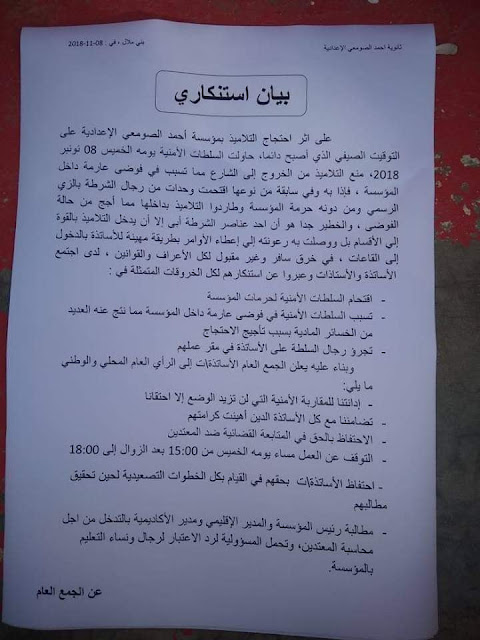 ثانوية احمد الصومعي الإعدادية
بني ملال، في : 08-11-2018
بيان استنكاري
على اثر احتجاج التلاميذ بمؤسسة أحمد الصومعي الإعدادية على
التوقيت الصيفي الذي أصبح دائما، حاولت السلطات الأمنية يومه الخميس 08 نونبر
2018، منع التلاميذ من الخروج إلى الشارع مما تسبب في فوضى عارمة داخل
المؤسسة ، فإذا به وفي سابقة من نوعها اقتحمت وحدات من رجال الشرطة بالزي
الرسمي ومن دونه حرمة المؤسسة وطاردوا التلاميذ بداخلها مما أجج من حالة
الفوضى ، والخطير جدا هو أن احد عناصر الشرطة أبى إلا أن يدخل التلاميذ بالقوة
إلي الأقسام بل ووصلت به رعونته إلي إعطاء الأوامر بطريقة مهينة للأساتذة بالدخول
إلى القاعات ، في خرق سافر وغير مقبول لكل الأعراف والقوانين ، لدى اجتمع
الأساتذة والأستاذات وعبروا عن استنكارهم لكل الخروقات المتمثلة في :
- اقتحام السلطات الأمنية لحرمات المؤسسة
- تسبب السلطات الأمنية في فوضى عارمة داخل المؤسسة مما نتج عنه العديد
من الخسائر المادية بسبب تأجيج الاحتجاج
- تجرؤ رجال السلطة على الأساتذة في مقر عملهم
وبناء عليه يعلن الجمع العام الأساتذة\ات إلى الرأي العام المحلي والوطني
ما يلي:
- إدانتنا للمقاربة الأمنية التي لن تزيد الوضع إلا احتقانا
- تضامننا مع كل الأساتذة الدين أهينت كرامتهم
- الاحتفاظ بالحق في المتابعة القضائية ضد المعتدين
- التوقف عن العمل مساء يومه الخميس من 15:00 بعد الزوال إلى 18:00
- احتفاظ الأساتذة\ات بحقهم في القيام بكل الخطوات التصعيدية لحين تحقيق
مطالبهم
- مطالبة رئيس المؤسسة والمدير الإقليمي ومدير الأكاديمية بالتدخل من اجل
محاسبة المعتدين، وتحمل المسؤولية لرد الاعتبار لرجال ونساء التعليم
بالمؤسسة.
عن الجمع العام